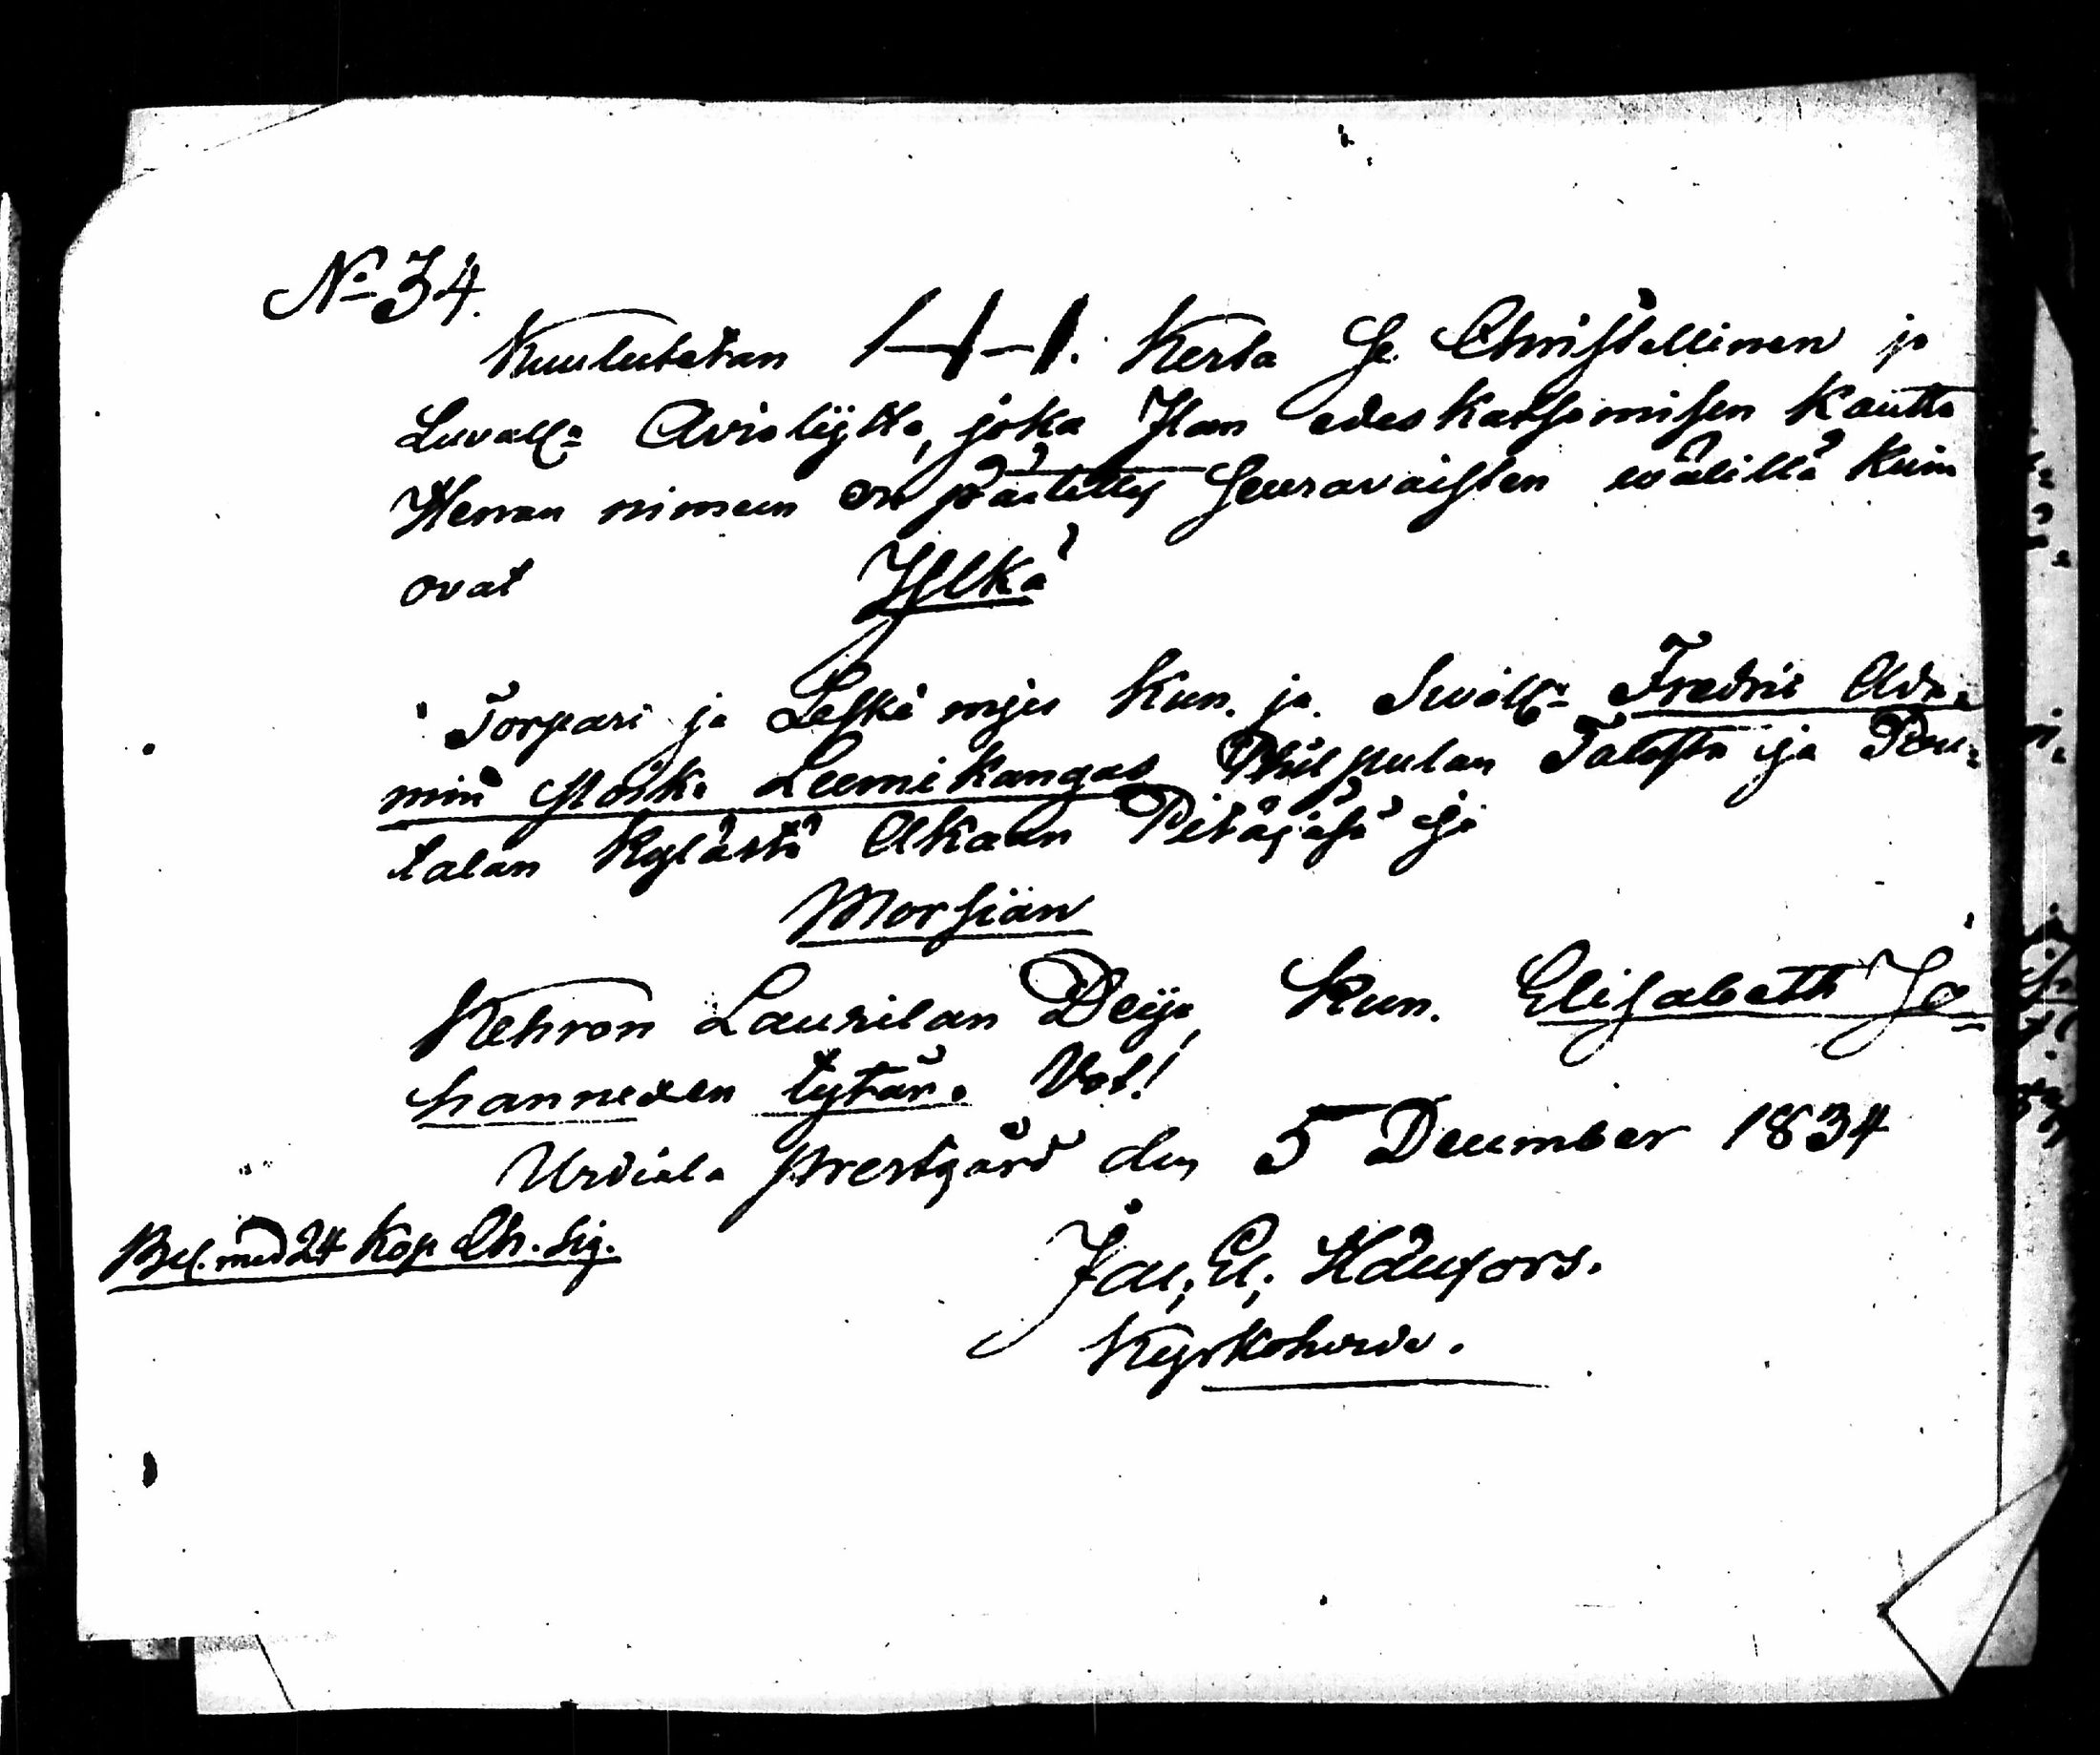 No 34.
Kuulutetan 1–1–1. Kerta Se Christellinen ja
Luvall: Avioliytto, joka Ilon edeskatsomisen kautta
Herran nimeen on päätetty Seuravaisten wälillä kuin
ovat Ylkä
Torpari ja Leski mjes Kun. ja Siwiä Fredric Ada-
min Poik. Leemikangas Philpulan Talosta ja Rau-
talan Kylästä Akaan Pitäjäsä ja
Morsian
Kehron Laurilan Peija Kun. Elisabeth Jo-
hannexen tytär. Vot!
Urdiala Prestgård den 5 December 1834
Bel. med 24 Kop Ch. sig.
Kyrkoherde.